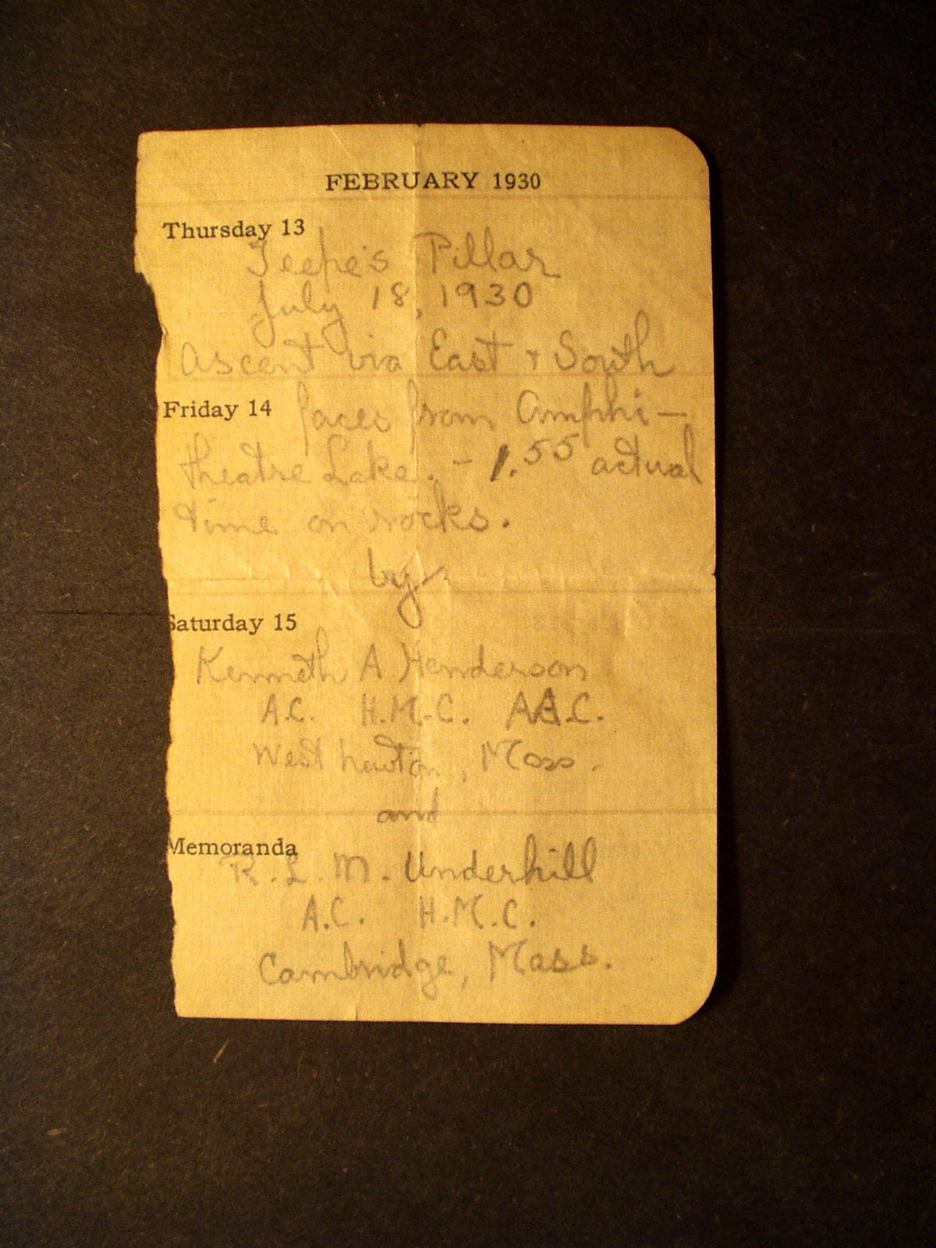 FEBRUARY 1930
Thursday 13
Teepe's Pillar
July 18, 1930
Ascent via East + South
Friday 14
faces from Amphi-
theatre Lake. - 1.55 actual
time on rocks.
by
Saturday 15
Kenneth A Henderson
A.C. H.M.C. A.A.C.
West Newton, Mass.
and
Memoranda
R. L. M. Underhill
A.C. H.M.C.
Cambridge, Mass.